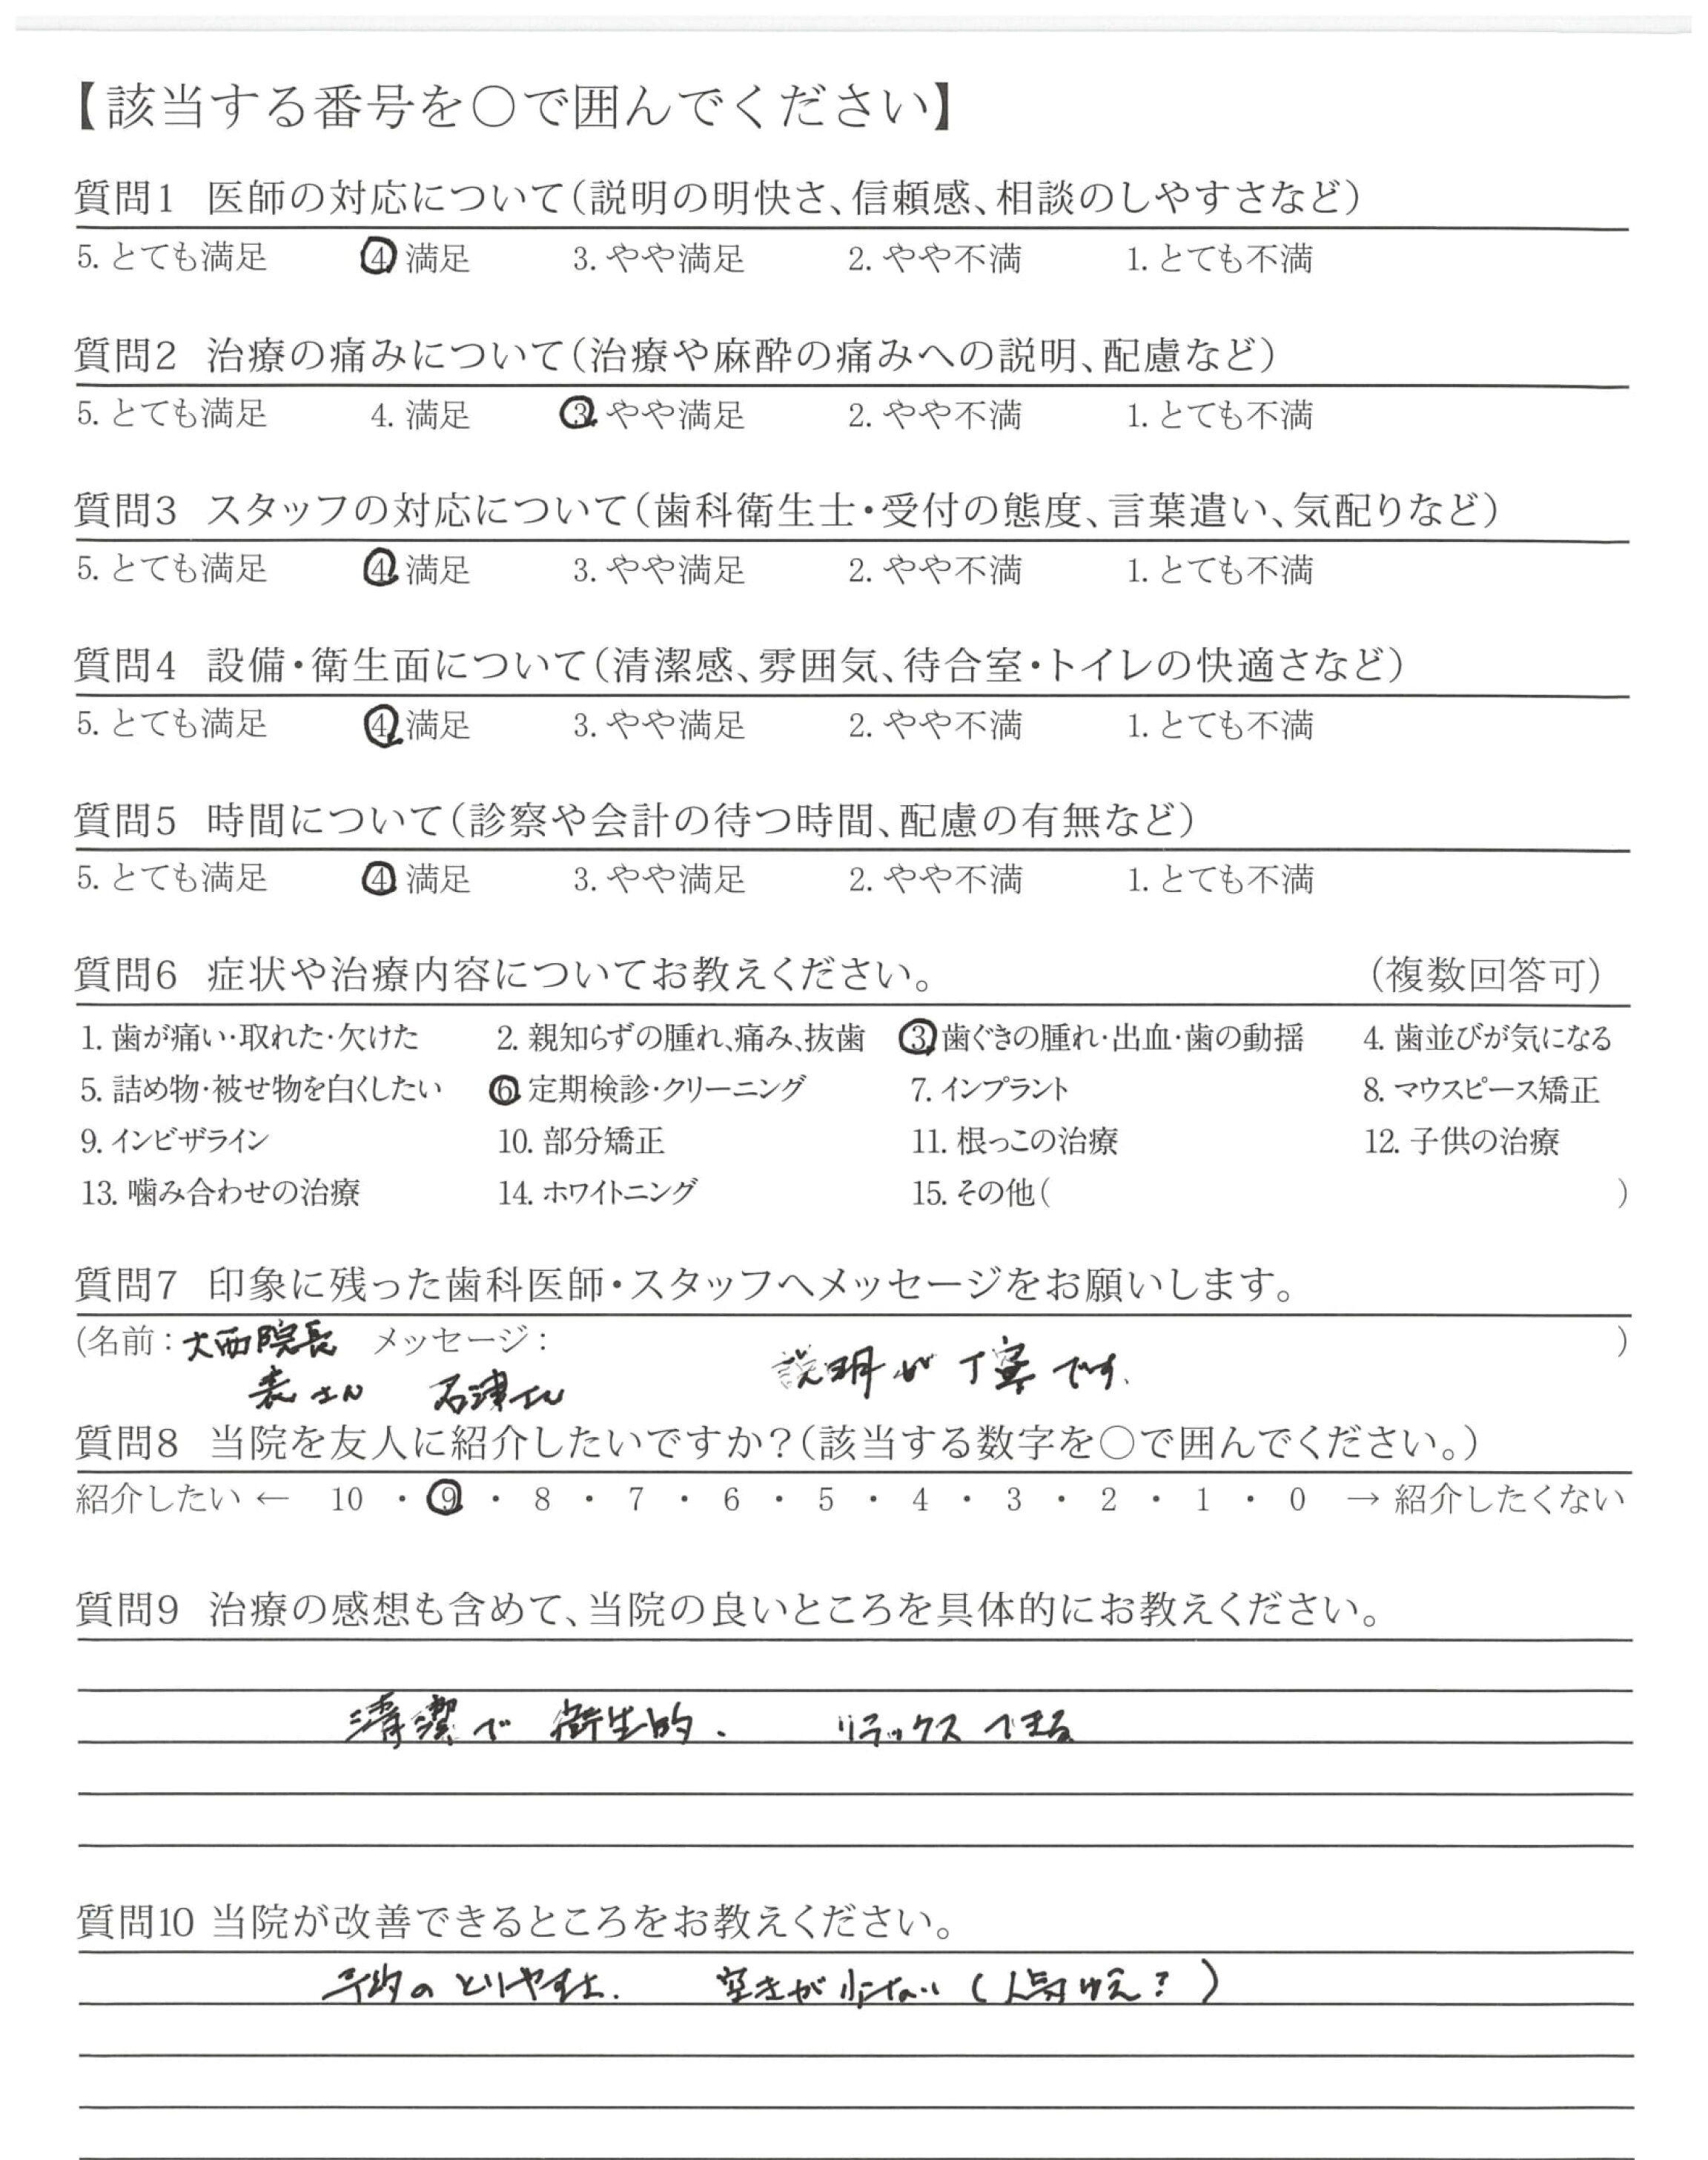 【該当する番号を○で囲んでください】
質問1 医師の対応について(説明の明快さ、信頼感、相談のしやすさなど)
5. とても満足 4. 満足 3. やや満足 2. やや不満 1. とても不満
質問2 治療の痛みについて(治療や麻酔の痛みへの説明、配慮など)
5. とても満足 4. 満足 3. やや満足 2. やや不満 1. とても不満
質問3 スタッフの対応について(歯科衛生士・受付の態度、言葉遣い、気配りなど)
5. とても満足 4. 満足 3. やや満足 2. やや不満 1. とても不満
質問4 設備・衛生面について(清潔感、雰囲気、待合室・トイレの快適さなど)
5. とても満足 4. 満足 3. やや満足 2. やや不満 1. とても不満
質問5 時間について(診察や会計の待つ時間、配慮の有無など)
5. とても満足 4. 満足 3. やや満足 2. やや不満 1. とても不満
質問6 症状や治療内容についてお教えください。 (複数回答可)
1. 歯が痛い・取れた・欠けた 2. 親知らずの腫れ、痛み、抜歯 3. 歯ぐきの腫れ・出血・歯の動揺 4. 歯並びが気になる
5. 詰め物・被せ物を白くしたい 6. 定期検診・クリーニング 7. インプラント 8. マウスピース矯正
9. インビザライン 10. 部分矯正 11. 根っこの治療 12. 子供の治療
13. 噛み合わせの治療 14. ホワイトニング 15. その他( )
質問7 印象に残った歯科医師・スタッフへメッセージをお願いします。
(名前:大西院長 メッセージ: )
表さん 石津さん 説明が丁寧です.
質問8 当院を友人に紹介したいですか?(該当する数字を○で囲んでください。)
紹介したい ← 10 ・ 9 ・ 8 ・ 7 ・ 6 ・ 5 ・ 4 ・ 3 ・ 2 ・ 1 ・ 0 → 紹介したくない
質問9 治療の感想も含めて、当院の良いところを具体的にお教えください。
清潔で 衛生的. リラックスできる
質問10 当院が改善できるところをお教えください。
予約のとりやすさ. 空きが少ない(人気ゆえ?)